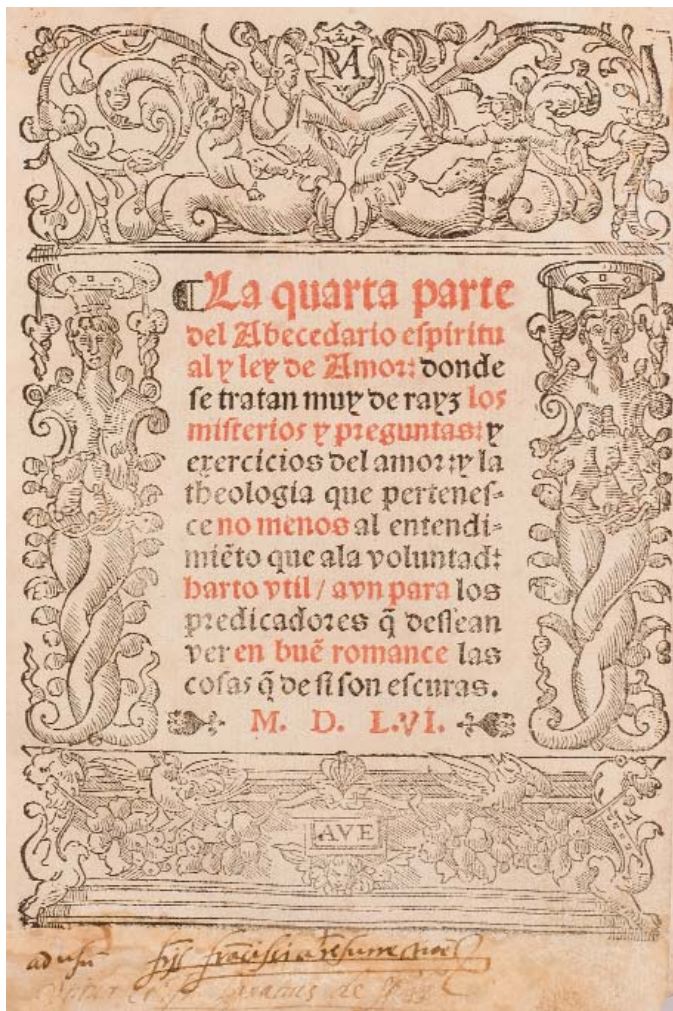 RA
¶ La quarta parte
del Abecedario espiritu
al y ley de Amor: donde
se tratan muy de rayz los
misterios y preguntas: y
exercicios del amor: y la
theologia que pertenes-
ce no menos al entendi-
miẽto que ala voluntad:
harto vtil / avn para los
predicadores q̃ dessean
ver en buẽ romance las
cosas q̃ de si son escuras.
M. D. L.VI.
AVE
ad usũ